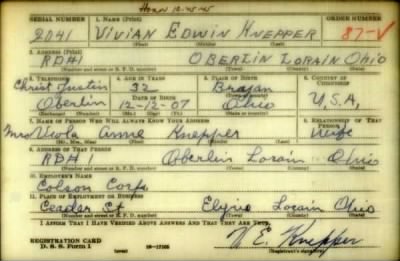 SERIAL NUMBER 1. NAME (Print) ORDER NUMBER
2041 VIVIAN EDWIN KNEPPER 87-V
(First) (Middle) (Last)
2. ADDRESS (Print)
RD#1 OBERLIN LORAIN OHIO
(Number and street or R. F. D. number) (Town) (County) (State)
3. TELEPHONE 4. AGE IN YEARS 5. PLACE OF BIRTH 6. COUNTRY OF CITIZENSHIP
Christ 32
DATE OF BIRTH
Oberlin 12-12-07 Ohio U.S.A.
(Exchange) (Number) (Mo.) (Day) (Yr.) (State or country)
7. NAME OF PERSON WHO WILL ALWAYS KNOW YOUR ADDRESS RELATIONSHIP OF THAT PERSON
Mrs Viola Anne Knepper Wife
(Mr., Mrs., Miss) (First) (Middle) (Last)
8. ADDRESS OF THAT PERSON
RD#1 Oberlin Lorain Ohio
(Number and street or R. F. D. number) (Town) (County) (State)
10. EMPLOYER'S NAME
Colson Corp.
11. PLACE OF EMPLOYMENT OR BUSINESS
Ceadar St Elyria Lorain Ohio
(Number and street or R. F. D. number) (Town) (County) (State)
I AFFIRM THAT I HAVE VERIFIED ABOVE ANSWERS AND THAT THEY ARE TRUE.
REGISTRATION CARD
D. S. S. Form 1 (over) 16-17105
V. E. Knepper
(Registrant's signature)